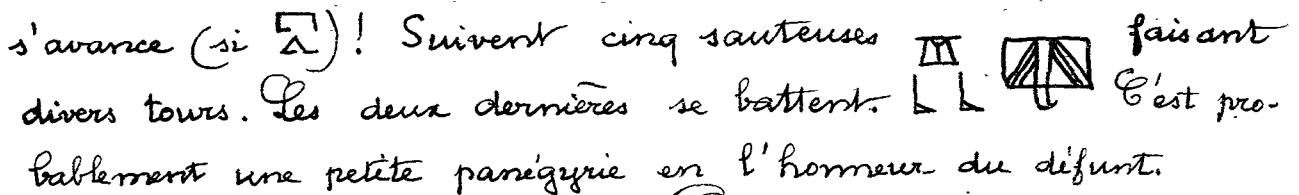 s'avance (si 𓉐𓂻)! Suivent cinq sauteuses faisant
divers tours. Les deux dernières se battent. C'est pro-
bablement une petite panégyrie en l'honneur du défunt.